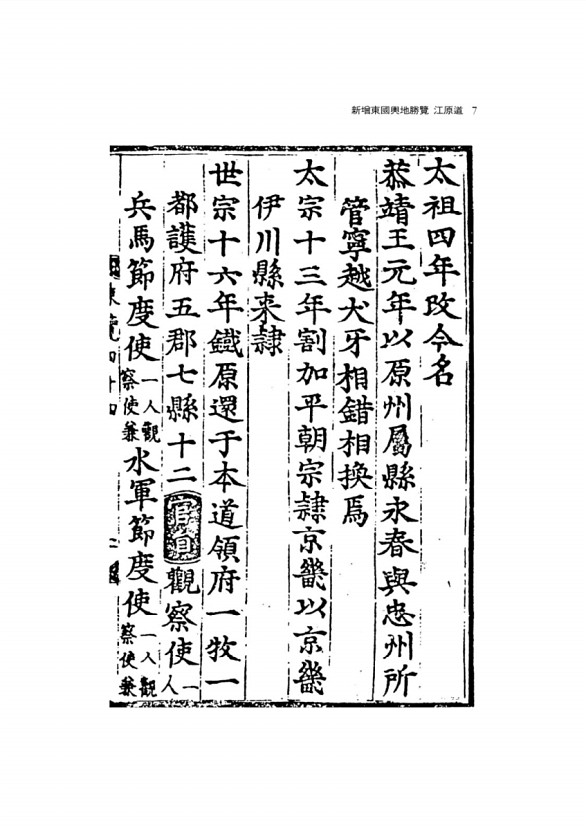 新增東國輿地勝覽 江原道 7
太祖四年改今名
恭靖王元年以原州屬縣永春與忠州所
管寧越犬牙相錯相換焉
太宗十三年割加平朝宗隷京畿以京畿
伊川縣来隷
世宗十六年鐵原還于本道領府一牧一
都護府五郡七縣十二
官員
觀察使一人
兵馬節度使一人觀察使兼水軍節度使一人觀察使兼